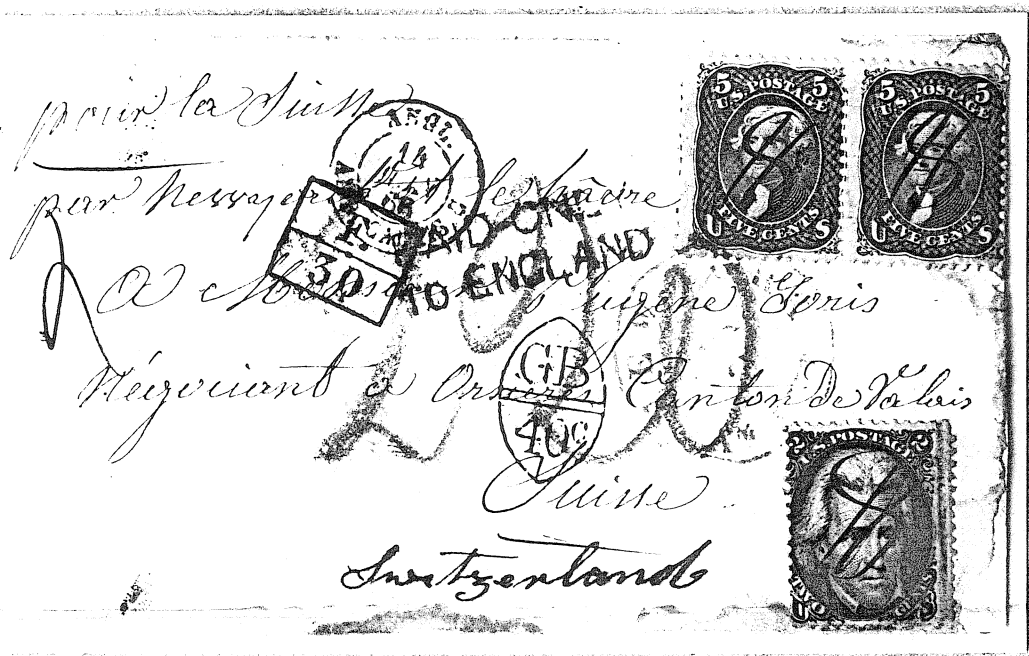 pour la Suisse
par Messager le Hâvre
à Monsieur Eugène Joris
Négociant à Orsières Canton De Valais
Suisse
Switzerland
ANGL.
14
PAID ONLY
TO ENGLAND
F.
30
GB
40c
20
5 5
U.S. POSTAGE
U FIVE CENTS S
5 5
U.S. POSTAGE
U FIVE CENTS S
2 2
U.S. POSTAGE
U TWO CENTS S